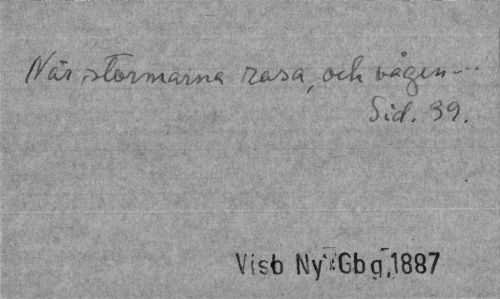 När stormarna rasa, och vågen---
Sid. 39.
Visb Ny Gbg, 1887